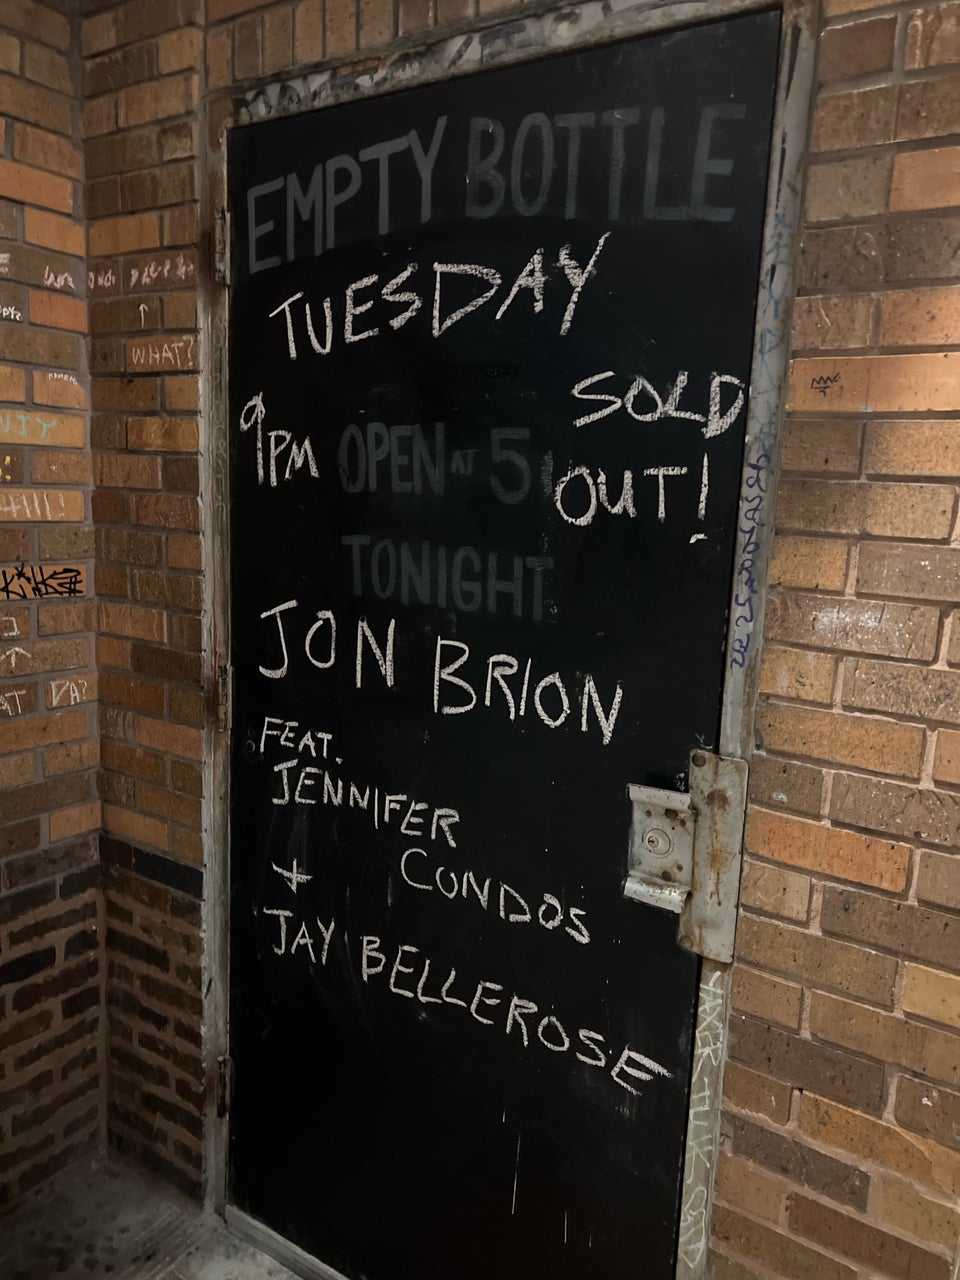 EMPTY BOTTLE
TUESDAY
9PM
OPEN AT 5
SOLD
OUT!
TONIGHT
JON BRION
FEAT.
JENNIFER
CONDOS
+
JAY BELLEROSE
WHAT?
DA?